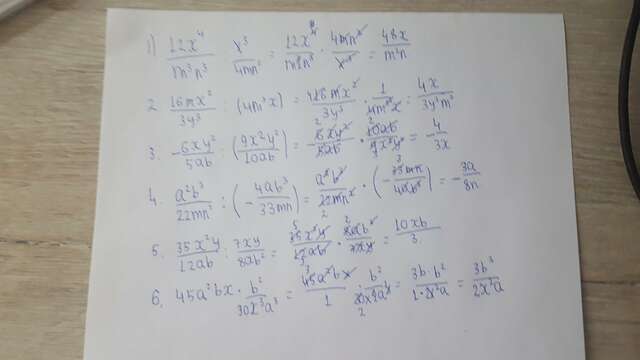 1) 12x⁴/m³n³ : x³/4mn² = 12x⁴/m³n³ · 4mn²/x³ = 48x/m²n
2 16mx²/3y³ : (4m³x) = 16mx²/3y³ · 1/4m³x = 4x/3y³m²
3. -6xy²/5ab : (9x²y²/10ab) = -6xy²/5ab · 10ab/9x²y² = -4/3x
4. a²b³/22mn² : (-4ab³/33mn) = a²b³/22mn² · (-33mn/4ab³) = -3a/8n
5. 35x²y/12ab : 7xy/8ab² = 35x²y/12ab · 8ab²/7xy = 10xb/3
6. 45a²bx · b²/30x³a³ = 45a²bx/1 · b²/30x³a³ = 3b·b²/1·2x²a = 3b³/2x²a